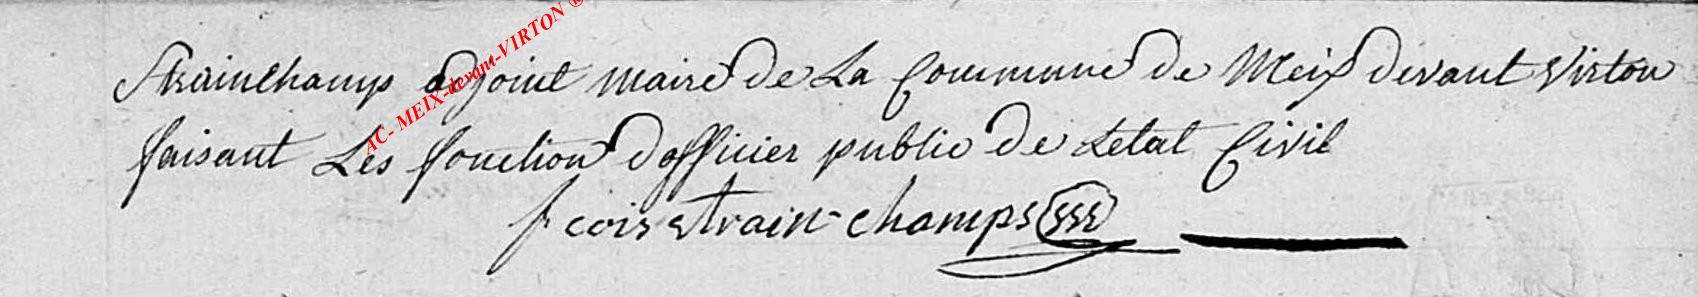 AC- MEIX-devant-VIRTON ®
Strainchamp adjoint maire de La Commune de Meix devant virton
faisant Les fonction dofficier public de Letat Civil
fcois strain-champs